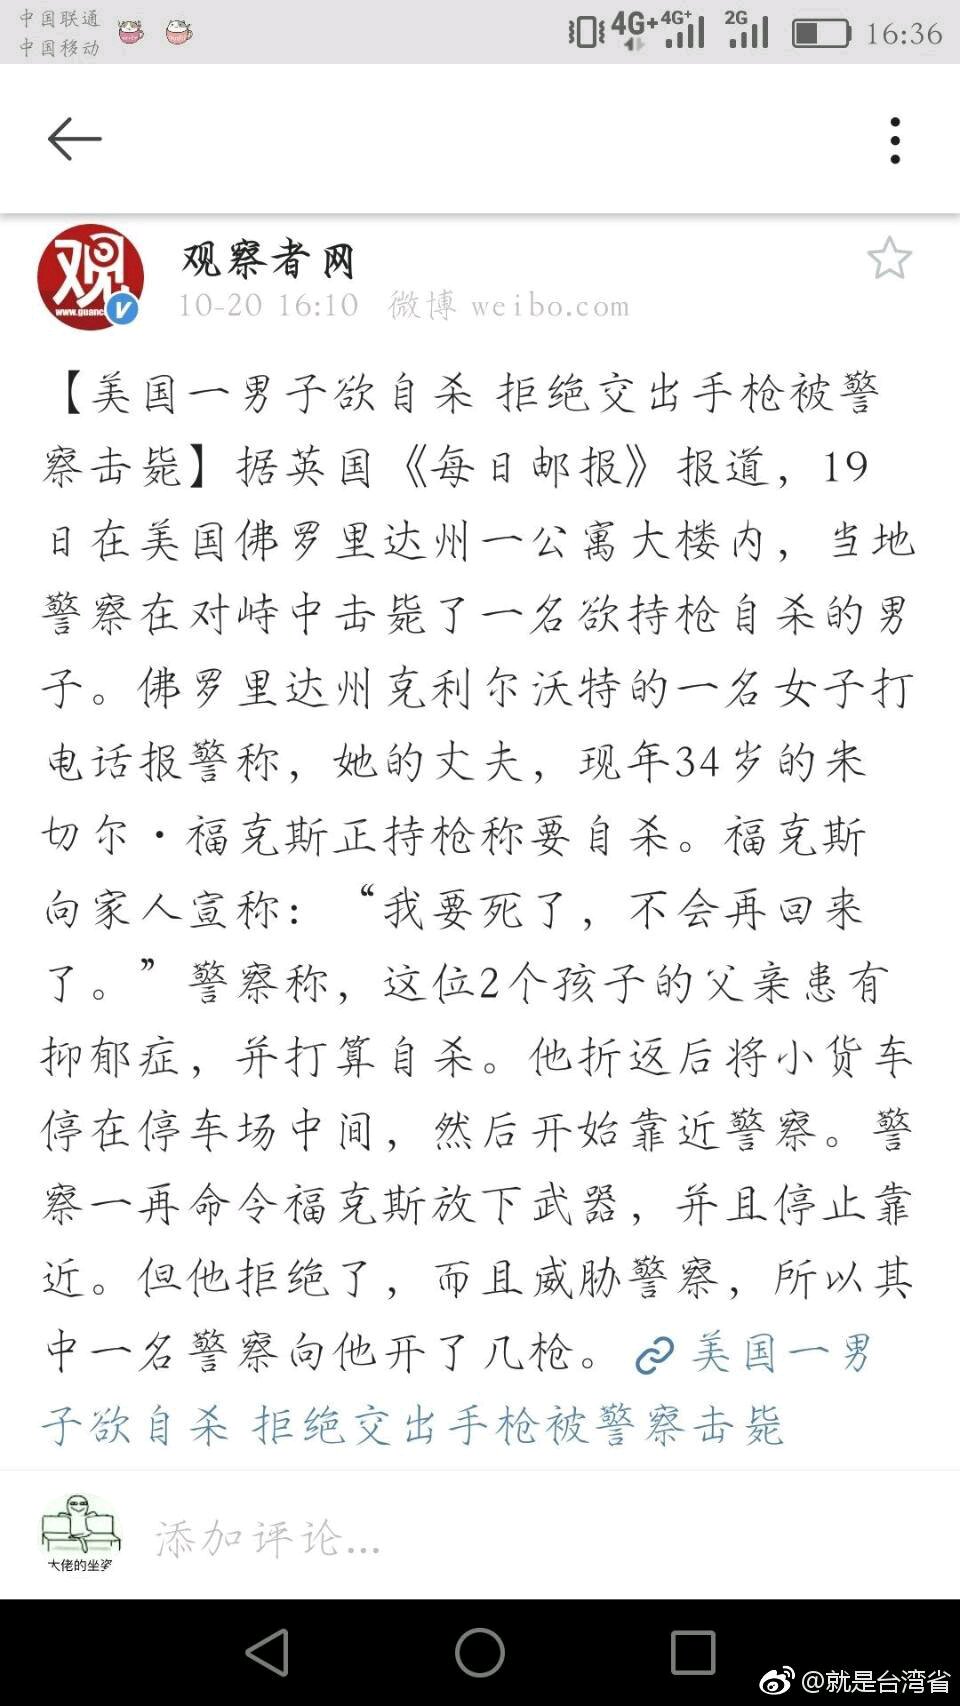 中国联通
中国移动
4G+ 4G+ 2G 16:36
观
www.guanc
V
观察者网
10-20 16:10 微博 weibo.com
【美国一男子欲自杀 拒绝交出手枪被警
察击毙】据英国《每日邮报》报道，19
日在美国佛罗里达州一公寓大楼内，当地
警察在对峙中击毙了一名欲持枪自杀的男
子。佛罗里达州克利尔沃特的一名女子打
电话报警称，她的丈夫，现年34岁的米
切尔·福克斯正持枪称要自杀。福克斯
向家人宣称：“我要死了，不会再回来
了。”警察称，这位2个孩子的父亲患有
抑郁症，并打算自杀。他折返后将小货车
停在停车场中间，然后开始靠近警察。警
察一再命令福克斯放下武器，并且停止靠
近。但他拒绝了，而且威胁警察，所以其
中一名警察向他开了几枪。美国一男
子欲自杀 拒绝交出手枪被警察击毙
大佬的坐姿
添加评论...
@就是台湾省